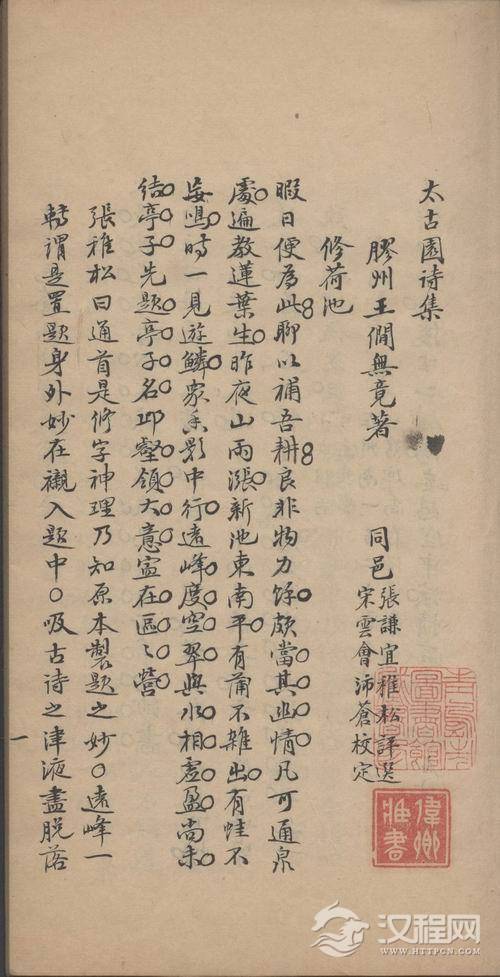 太古園诗集
膠州王僩無竟著 同邑 張謙宜稚松評選 宋雲會沛蒼校定
修荷池
暇日便為此聊以補吾耕良非物力馀頗當其幽情凡可通泉
處遍教蓮葉生昨夜山雨漲新池東南平有蒲不雜出有蛙不
妄鳴時一見遊鱗眾香影中行遠峰度空翠與水相虛盈尚未
结亭子先題亭子名邱壑領大意寧在區〻營
張稚松曰通首是修字神理乃知原本製題之妙〇遠峰一
轉谓是置題身外妙在襯入題中〇吸古诗之津液盡脱落
一
偉卿
汉程网
HTTPCN.COM